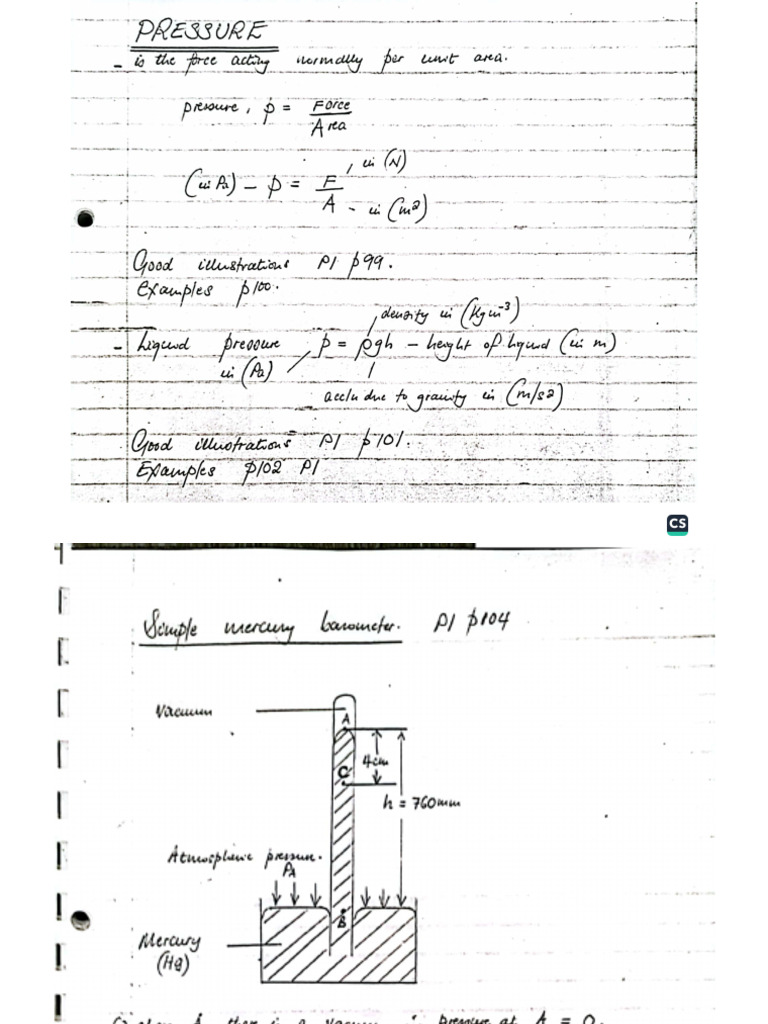 PRESSURE
- is the force acting normally per unit area.
pressure, p = Force
Area
, in (N)
(in Pa) - p = F
A - in (m2)
Good illustrations P1 p99.
Examples p100.
density in (Kgm⁻³)
- Liquid pressure p = ρgh - height of liquid (in m)
in (Pa)
accln due to gravity in (m/s2)
Good illustrations P1 p101.
Examples p102 P1
CS
Simple mercury barometer. P1 p104
Vacuum
A
4cm
C
h = 760mm
Atmospheric pressure.
PA
B
Mercury
(Hg)
A there is a vacuum ∴ pressure at A = 0.